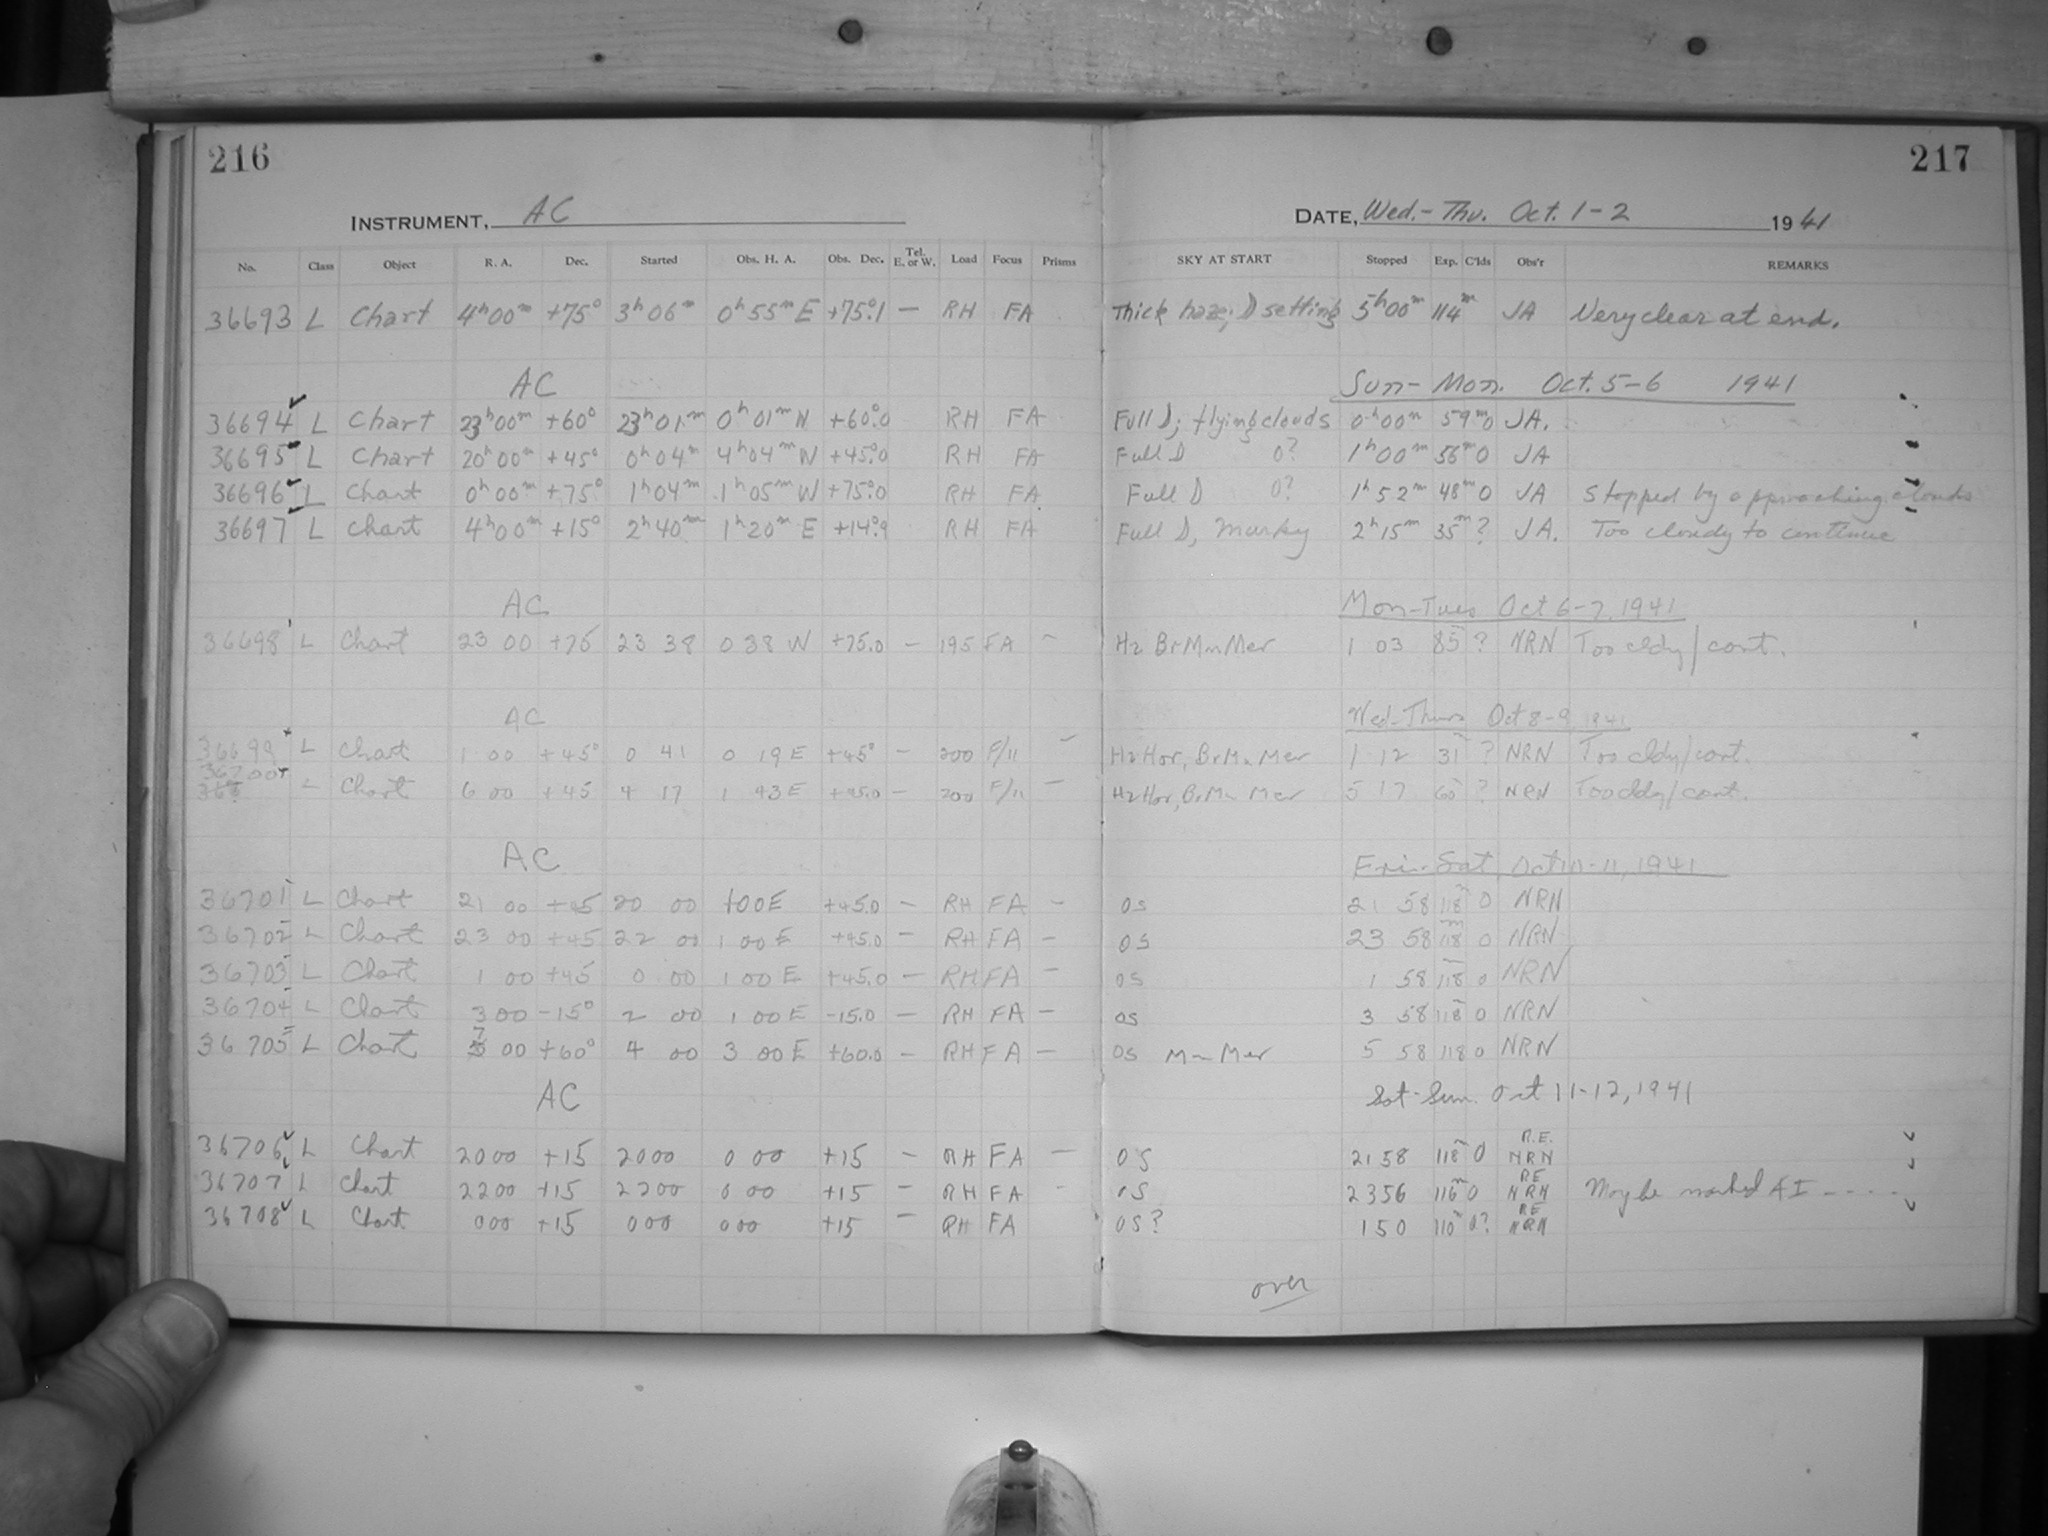 216
INSTRUMENT, AC
No. Class Object R. A. Dec. Started Obs. H. A. Obs. Dec. Tel. E. or W. Load Focus Prisms
36693 L Chart 4h00m +75° 3h06m 0h55m E +75°.1 — RH FA
AC
36694 L Chart 23h00m +60° 23h01m 0h01m W +60°.0 RH FA
36695 L Chart 20h00m +45° 0h04m 4h04m W +45°.0 RH FA
36696 L Chart 0h00m +75° 1h04m 1h05m W +75°.0 RH FA
36697 L Chart 4h00m +15° 2h40m 1h20m E +14°.9 RH FA
AC
36698 L Chart 23 00 +75 23 38 0 38 W +75.0 — 195 FA —
AC
36699 L Chart 1 00 +45° 0 41 0 19 E +45° — 200 F/11 —
36700 L Chart 6 00 +45 4 17 1 43 E +45.0 — 200 F/11 —
AC
36701 L Chart 21 00 +45 20 00 1 00 E +45.0 — RH FA —
36702 L Chart 23 00 +45 22 00 1 00 E +45.0 — RH FA —
36703 L Chart 1 00 +45 0 00 1 00 E +45.0 — RH FA —
36704 L Chart 3 00 -15° 2 00 1 00 E -15.0 — RH FA —
36705 L Chart 7 00 +60° 4 00 3 00 E +60.0 — RH FA —
AC
36706 L Chart 20 00 +15 20 00 0 00 +15 — RH FA —
36707 L Chart 22 00 +15 22 00 0 00 +15 — RH FA -
36708 L Chart 0 00 +15 0 00 0 00 +15 — RH FA
217
DATE, Wed.-Thu. Oct. 1-2 1941
SKY AT START Stopped Exp. C'lds Obs'r REMARKS
Thick haze; D setting 5h00m 114m JA Very clear at end.
Sun-Mon. Oct. 5-6 1941
Full D; flying clouds 0h00m 59m 0 JA.
Full D 0? 1h00m 56m 0 JA
Full D 0? 1h52m 48m 0 JA Stopped by approaching clouds
Full D, Murky 2h15m 35m ? JA. Too cloudy to continue
Mon-Tues Oct 6-7, 1941
Hz BrMnMer 1 03 85 ? NRN Too cldy/cont.
Wed-Thurs Oct 8-9 1941
HzHor, BrMn Mer 1 12 31 ? NRN Too cldy/cont.
HzHor, BrMn Mer 5 17 60 ? NRN Too cldy/cont.
Fri-Sat Oct 10-11, 1941
OS 21 58 118 0 NRN
OS 23 58 118 0 NRN
OS 1 58 118 0 NRN
OS 3 58 118 0 NRN
OS Mn Mer 5 58 118 0 NRN
Sat-Sun. Oct 11-12, 1941
OS 21 58 118 0 R.E. NRN
OS 23 56 116m 0 RE NRN Maybe marked AI - - - -
OS? 1 50 110 0? RE NRN
over